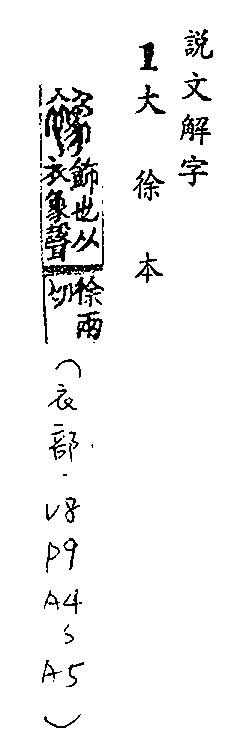 説文解字
1大徐本
襐飾也从衣象聲徐兩切(衣部.V8P9A4sA5)